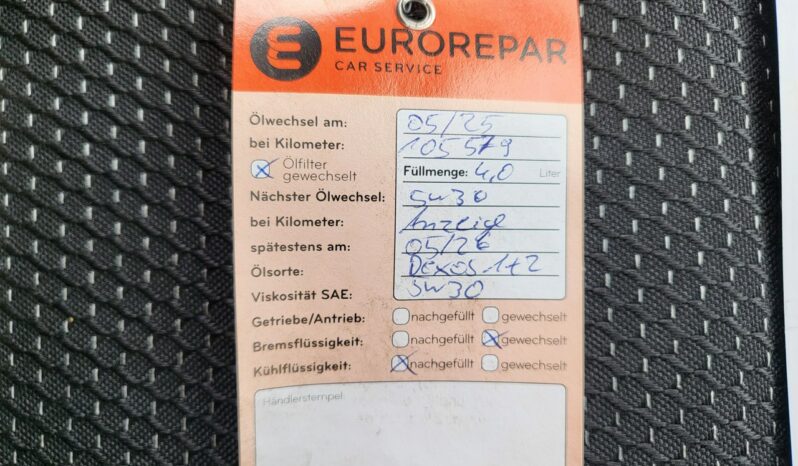 EUROREPAR
CAR SERVICE
Ölwechsel am: 05/25
bei Kilometer: 105579
Ölfilter gewechselt Füllmenge: 4,0 Liter
Nächster Ölwechsel: 5W30
bei Kilometer: Anzeige
spätestens am: 05/26
Ölsorte: DEXOS 1+2
Viskosität SAE: 5W30
Getriebe/Antrieb: nachgefüllt gewechselt
Bremsflüssigkeit: nachgefüllt gewechselt
Kühlflüssigkeit: nachgefüllt gewechselt
Händlerstempel: